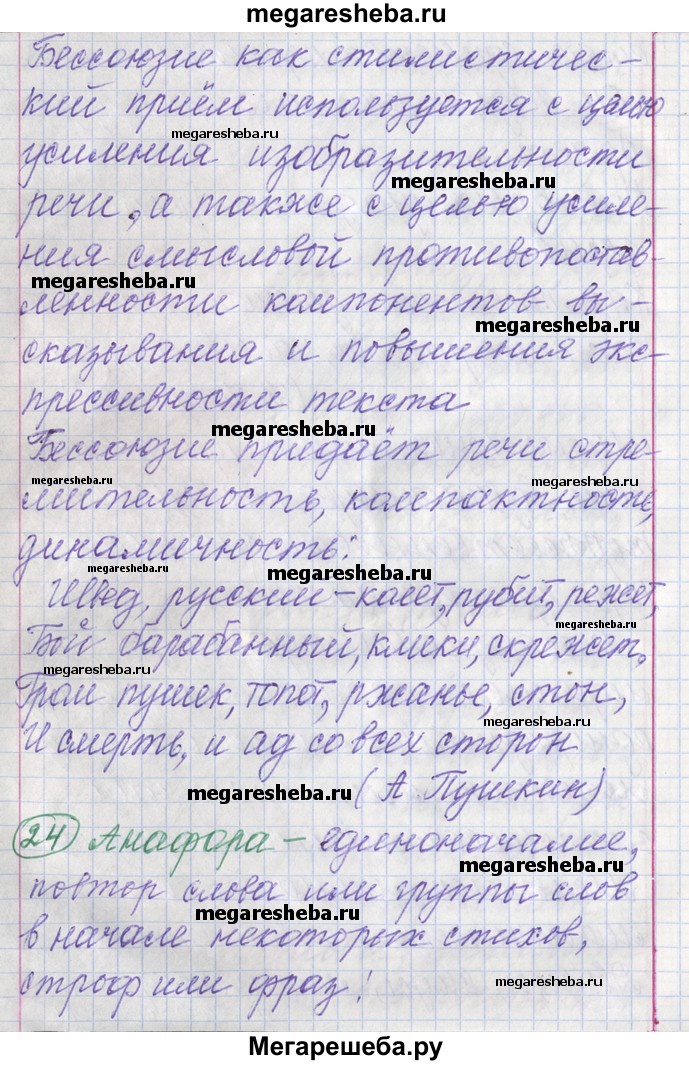 megaresheba.ru
Бессоюзие как стилистичес-
кий приём используется с целью
megaresheba.ru
усиления изобразительности
megaresheba.ru
речи, а также с целью усиле-
ния смысловой противопостав-
megaresheba.ru
ленности компонентов вы-
megaresheba.ru
сказывания и повышения экс-
прессивности текста
megaresheba.ru
Бессоюзие придаёт речи стре-
megaresheba.ru
megaresheba.ru
мительность, компактность,
динамичность:
megaresheba.ru
Швед, русский – колет, рубит, режет,
Бой барабанный, клики, скрежет,
megaresheba.ru
Гром пушек, топот, ржанье, стон,
megaresheba.ru
И смерть, и ад со всех сторон
megaresheba.ru
(А. Пушкин)
24 Анафора – единоначалие,
megaresheba.ru
повтор слова или группы слов
megaresheba.ru
в начале некоторых стихов,
строф или фраз:
megaresheba.ru
megaresheba.ru
Мегарешеба.ру